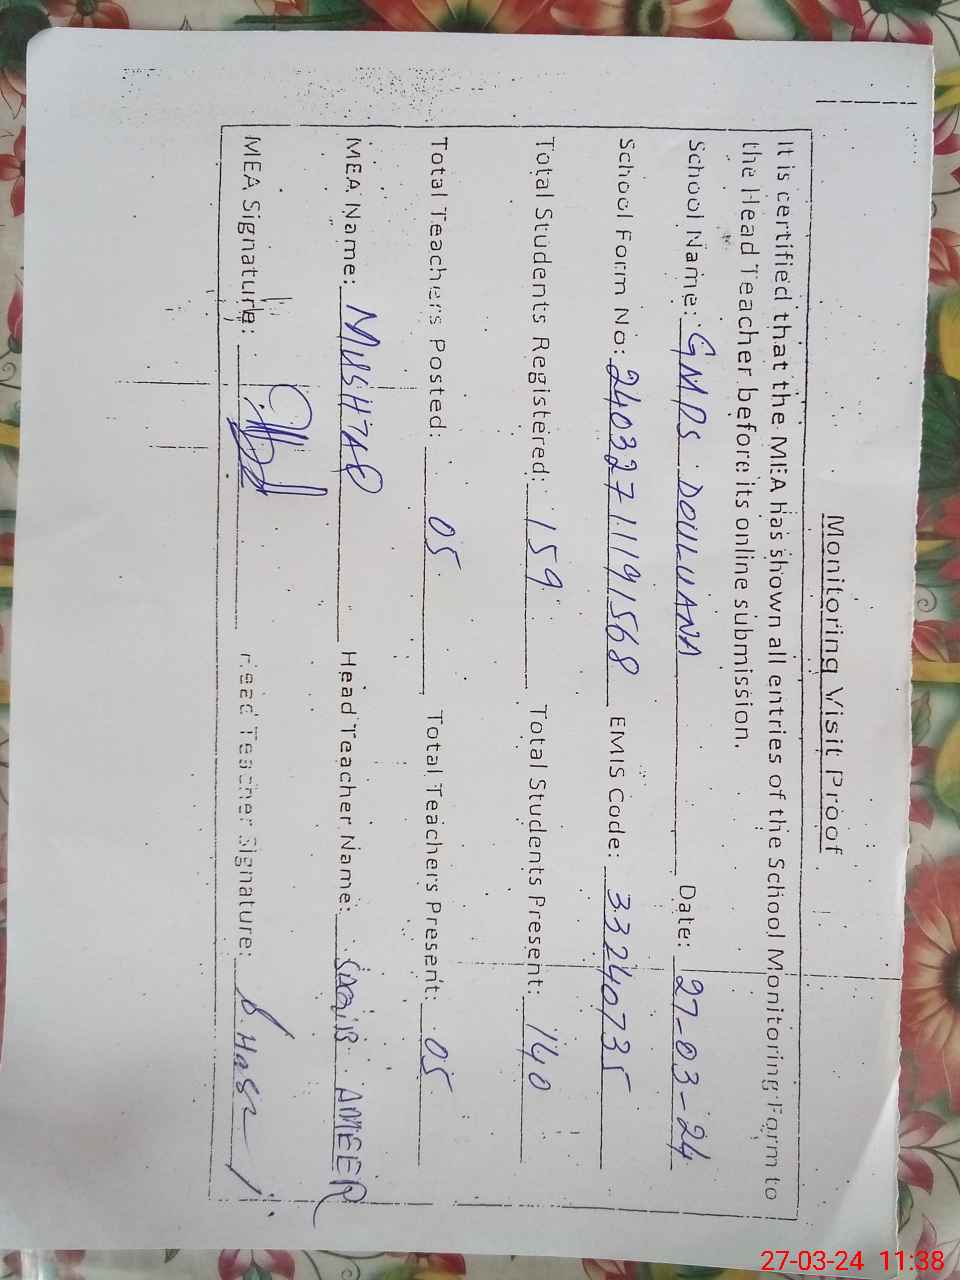 Monitoring Visit Proof
It is certified that the MEA has shown all entries of the School Monitoring Form to
the Head Teacher before its online submission.
School Name: GMDS DOULUANA Date: 27-03-24
School Form No: 240327111191568 EMIS Code: 33240735
Total Students Registered: 159 Total Students Present: 140
Total Teachers Posted: 05 Total Teachers Present: 05
MEA Name: MUSHTAQ Head Teacher Name: AMEER
MEA Signature: Head Teacher Signature:
27-03-24 11:38